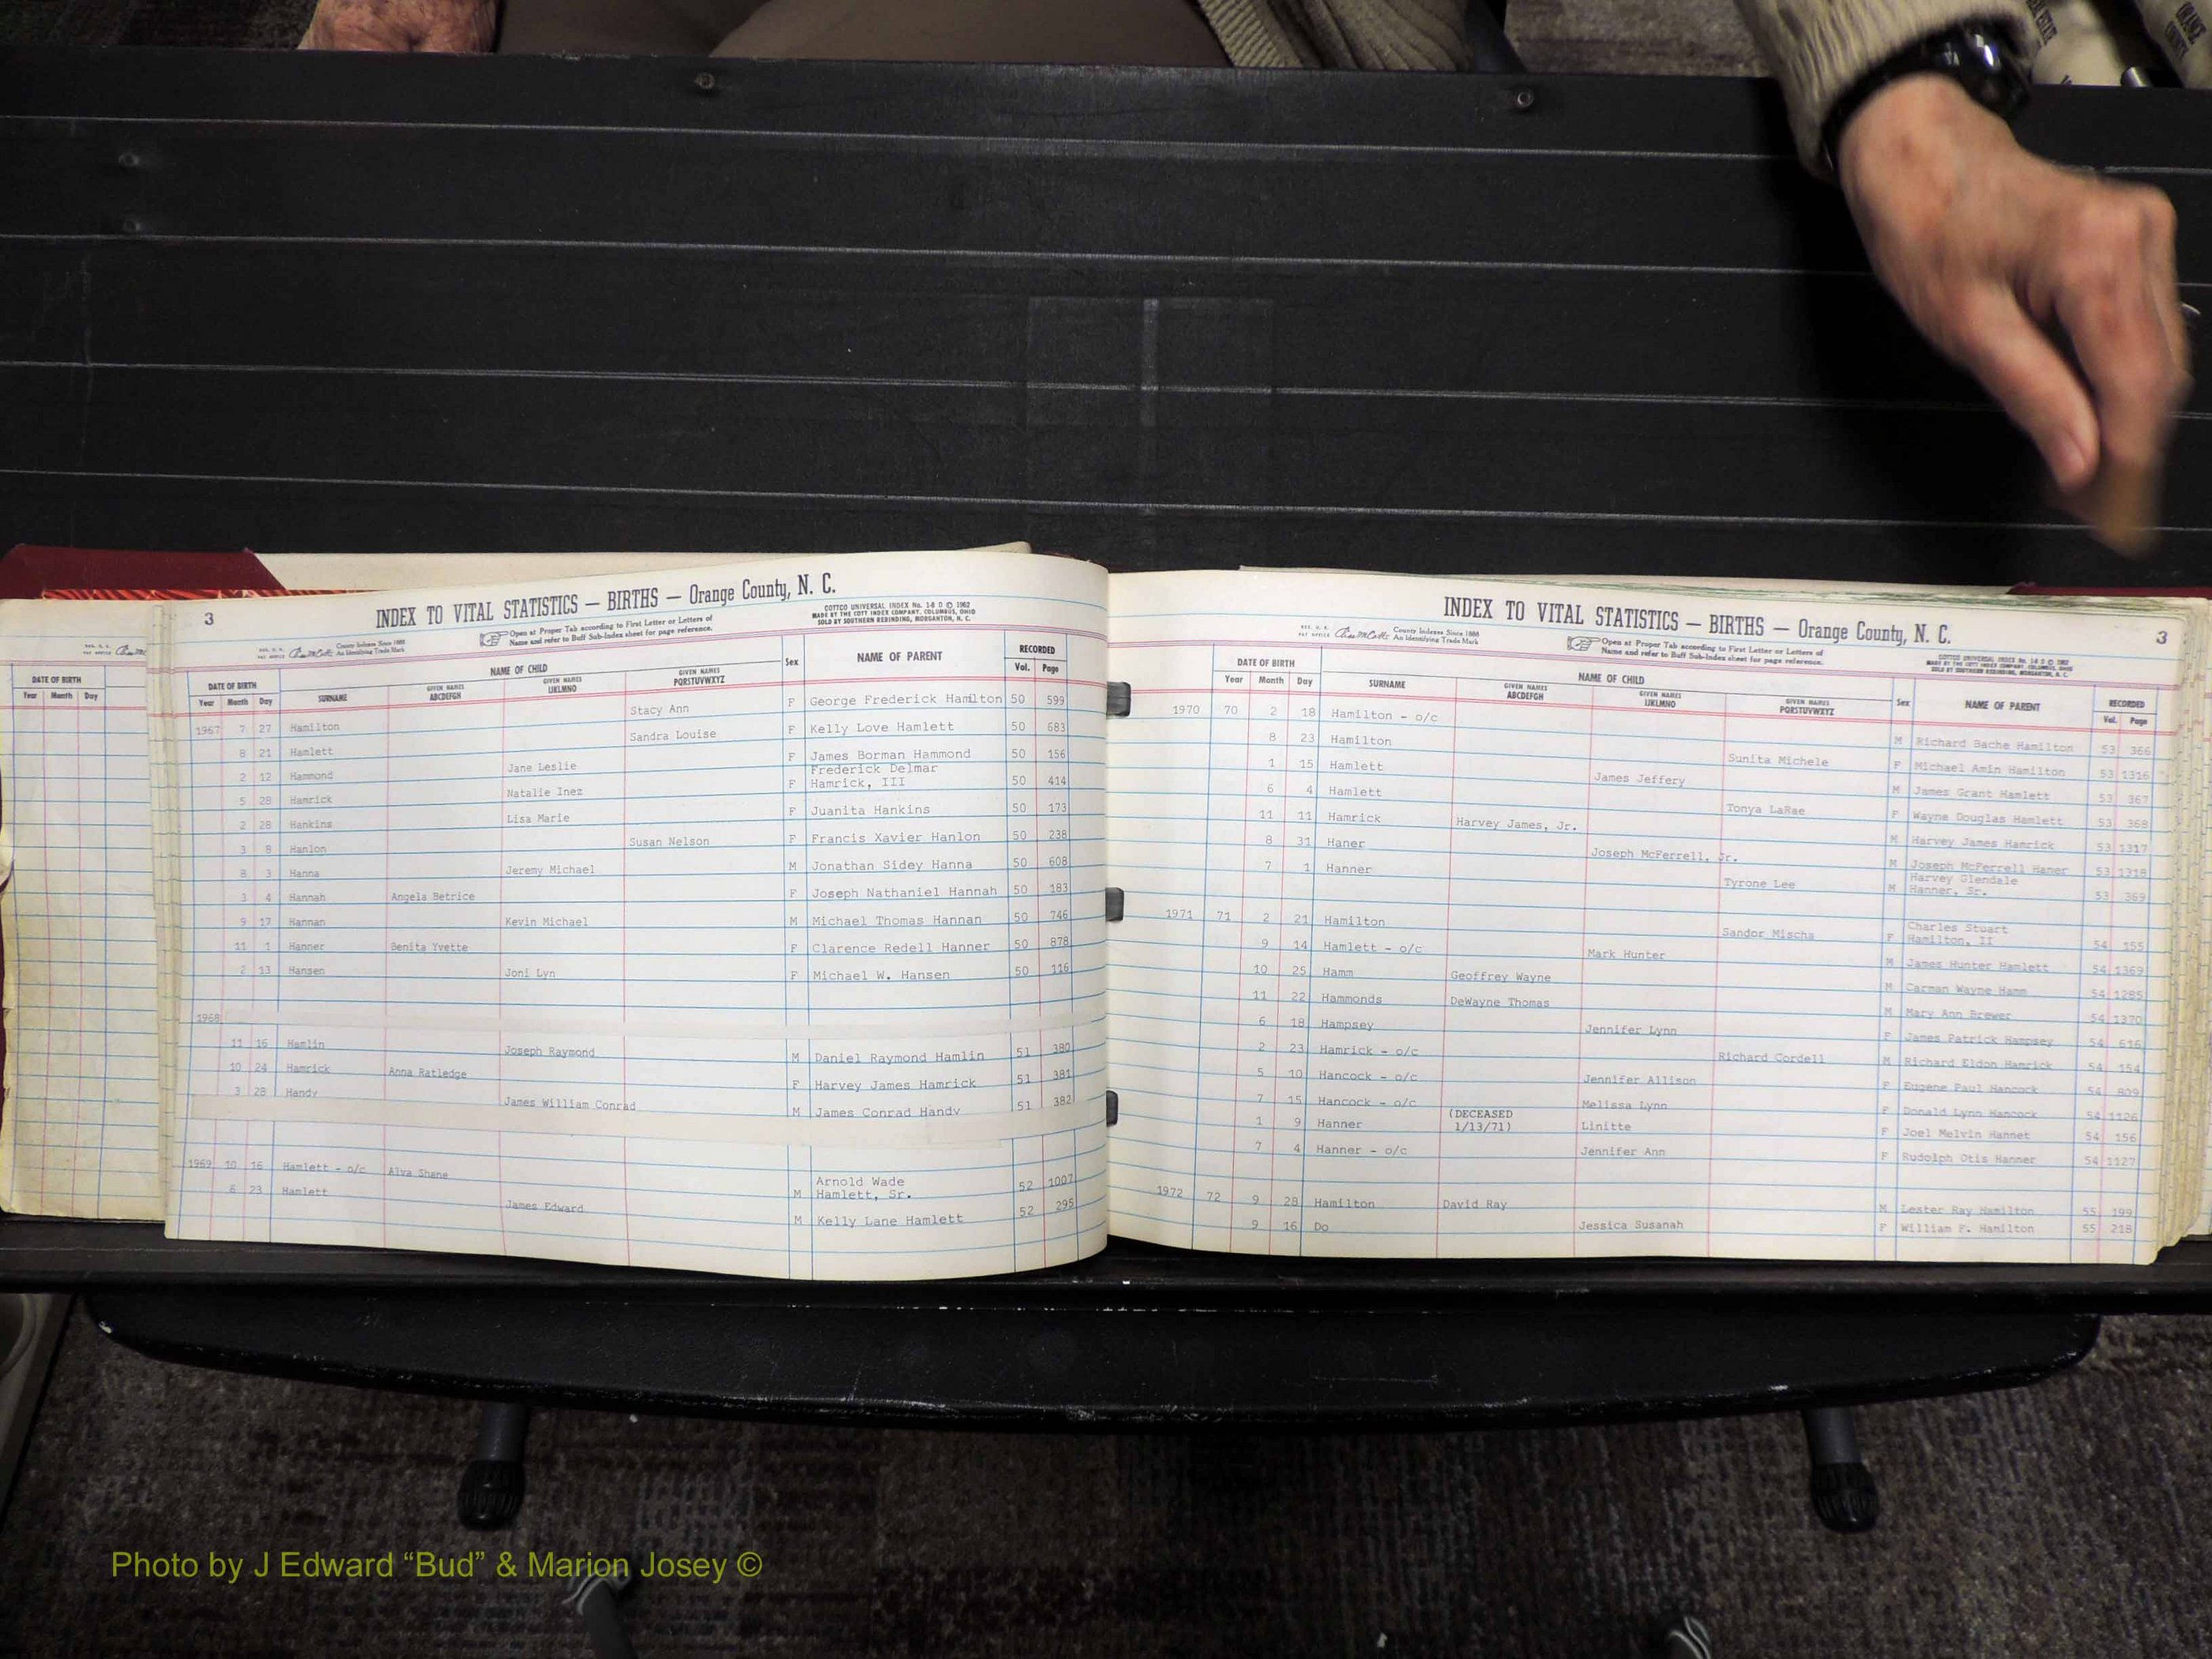 DATE OF BIRTH
Year Month Day
3
INDEX TO VITAL STATISTICS — BIRTHS — Orange County, N. C.
County Indexes Since 1888
An Identifying Trade Mark
Open at Proper Tab according to First Letter or Letters of
Name and refer to Buff Sub-Index sheet for page reference.
COTTCO UNIVERSAL INDEX No. 1-8 D © 1962
MADE BY THE COTT INDEX COMPANY, COLUMBUS, OHIO
SOLD BY SOUTHERN REBINDING, MORGANTON, N. C.
DATE OF BIRTH NAME OF CHILD Sex NAME OF PARENT RECORDED
Year Month Day SURNAME GIVEN NAMES ABCDEFGH GIVEN NAMES IJKLMNO GIVEN NAMES PQRSTUVWXYZ Vol. Page
1967 7 27 Hamilton Stacy Ann F George Frederick Hamilton 50 599
8 21 Hamlett Sandra Louise F Kelly Love Hamlett 50 683
2 12 Hammond Jane Leslie F James Borman Hammond 50 156
5 28 Hamrick Natalie Inez F Frederick Delmar
Hamrick, III 50 414
2 28 Hankins Lisa Marie F Juanita Hankins 50 173
3 8 Hanlon Susan Nelson F Francis Xavier Hanlon 50 238
8 3 Hanna Jeremy Michael M Jonathan Sidey Hanna 50 608
3 4 Hannah Angela Betrice F Joseph Nathaniel Hannah 50 183
9 17 Hannan Kevin Michael M Michael Thomas Hannan 50 746
11 1 Hanner Benita Yvette F Clarence Redell Hanner 50 878
2 13 Hansen Joni Lyn F Michael W. Hansen 50 116
1968
11 16 Hamlin Joseph Raymond M Daniel Raymond Hamlin 51 380
10 24 Hamrick Anna Ratledge F Harvey James Hamrick 51 381
3 28 Handy James William Conrad M James Conrad Handy 51 382
1969 10 16 Hamlett - o/c Alva Shane M Arnold Wade
Hamlett, Sr. 52 1007
6 23 Hamlett James Edward M Kelly Lane Hamlett 52 295
INDEX TO VITAL STATISTICS — BIRTHS — Orange County, N. C.
3
County Indexes Since 1888
An Identifying Trade Mark
Open at Proper Tab according to First Letter or Letters of
Name and refer to Buff Sub-Index sheet for page reference.
COTTCO UNIVERSAL INDEX No. 1-8 D © 1962
MADE BY THE COTT INDEX COMPANY, COLUMBUS, OHIO
SOLD BY SOUTHERN REBINDING, MORGANTON, N. C.
DATE OF BIRTH NAME OF CHILD Sex NAME OF PARENT RECORDED
Year Month Day SURNAME GIVEN NAMES ABCDEFGH GIVEN NAMES IJKLMNO GIVEN NAMES PQRSTUVWXYZ Vol. Page
1970 70 2 18 Hamilton - o/c M Richard Bache Hamilton 53 366
8 23 Hamilton Sunita Michele F Michael Amin Hamilton 53 1316
1 15 Hamlett James Jeffery M James Grant Hamlett 53 367
6 4 Hamlett Tonya LaRae F Wayne Douglas Hamlett 53 368
11 11 Hamrick Harvey James, Jr. M Harvey James Hamrick 53 1317
8 31 Haner Joseph McFerrell, Jr. M Joseph McFerrell Haner 53 1318
7 1 Hanner Tyrone Lee M Harvey Glendale
Hanner, Sr. 53 369
1971 71 2 21 Hamilton Sandor Mischa F Charles Stuart
Hamilton, II 54 155
9 14 Hamlett - o/c Mark Hunter M James Hunter Hamlett 54 1369
10 25 Hamm Geoffrey Wayne M Carman Wayne Hamm 54 1285
11 22 Hammonds DeWayne Thomas M Mary Ann Brewer 54 1370
6 18 Hampsey Jennifer Lynn F James Patrick Hampsey 54 616
2 23 Hamrick - o/c Richard Cordell M Richard Eldon Hamrick 54 154
5 10 Hancock - o/c Jennifer Allison F Eugene Paul Hancock 54 809
7 15 Hancock - o/c Melissa Lynn F Donald Lynn Hancock 54 1126
1 9 Hanner (DECEASED
1/13/71) Linitte F Joel Melvin Hannet 54 156
7 4 Hanner - o/c Jennifer Ann F Rudolph Otis Hanner 54 1127
1972 72 9 28 Hamilton David Ray M Lester Ray Hamilton 55 199
9 16 Do Jessica Susanah F William F. Hamilton 55 218
Photo by J Edward “Bud” & Marion Josey ©